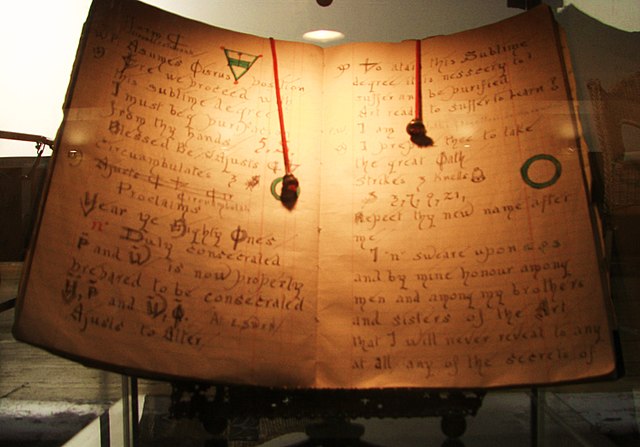 I am
Assumes Osiris position
Ere we proceed with
this sublime degree
I must beg purifica
from thy hands
Blessed Be. Adjusts
circumambulates 3
Ajusts
Proclaims
Hear ye Mighty Ones
"n" Duly consecrated
P and W is now properly
prepared to be consecrated
P and W
Ajusts to Alter
To atain this Sublime
degree it is nesscery to
suffer and be purified
Art ready to suffer to learn
I am
I prepare thee to take
the great Oath
Strikes 3 Knells
3, 7, 9, 21,
Repeat thy new name after
me
I "n" sweare upon
and by mine honour among
men and among my brothers
and sisters of the Art
that I will never reveal to any
at all any of the secrets of